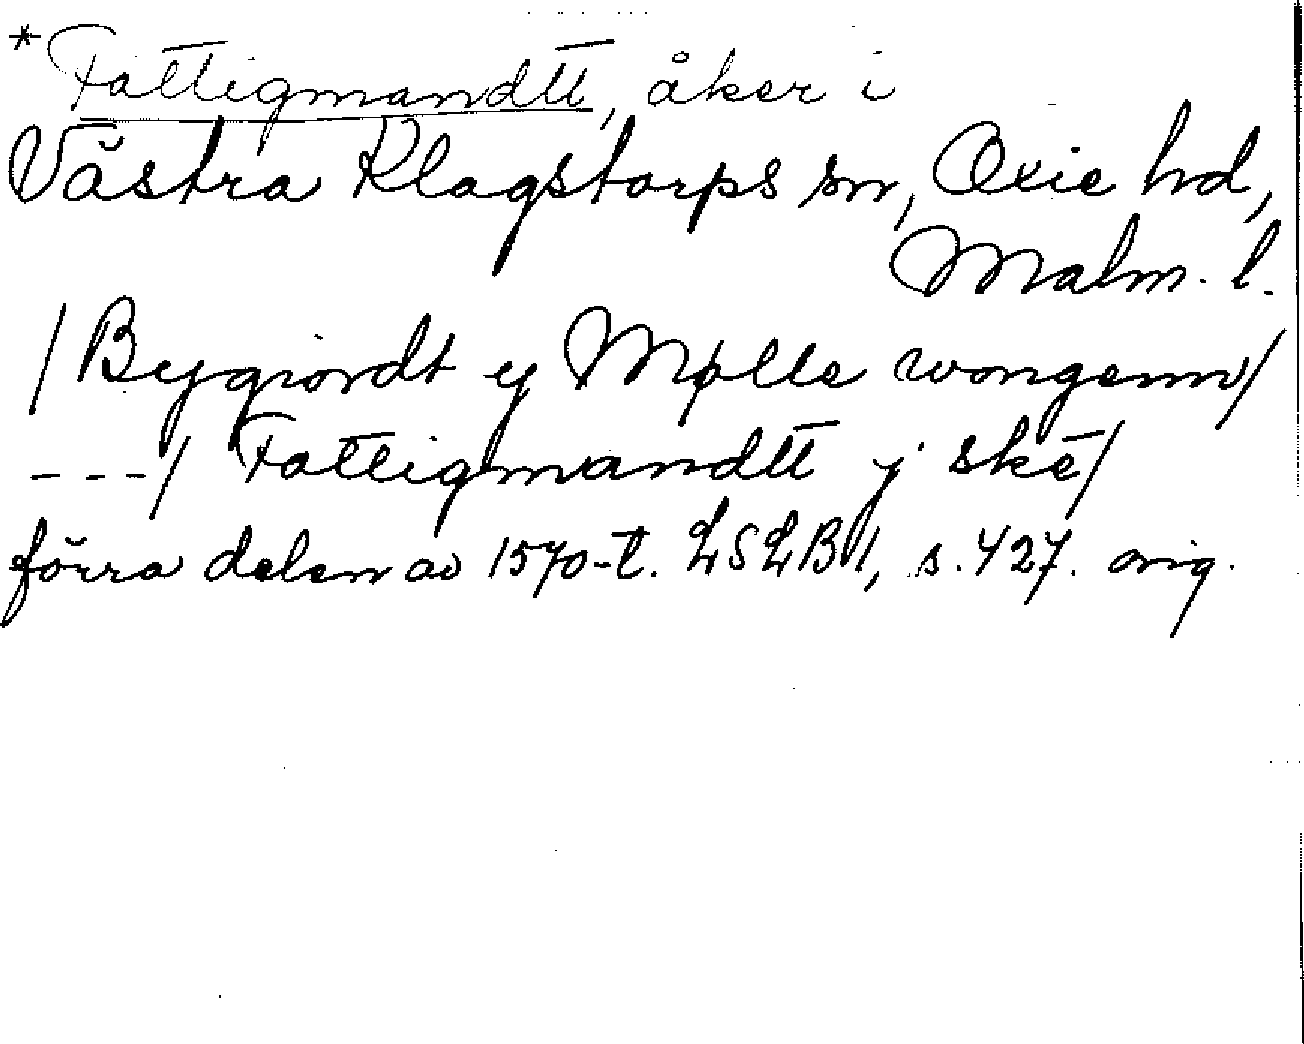 *Fattigmandtt, åker i
Västra Klagstorps sn, Oxie hd,
Malm. l.
/Bygiordt y Mølle wongenn/
---/ Fattigmandtt j skē/
förra delen av 1570-t. LSLB 1, s. 427. orig.